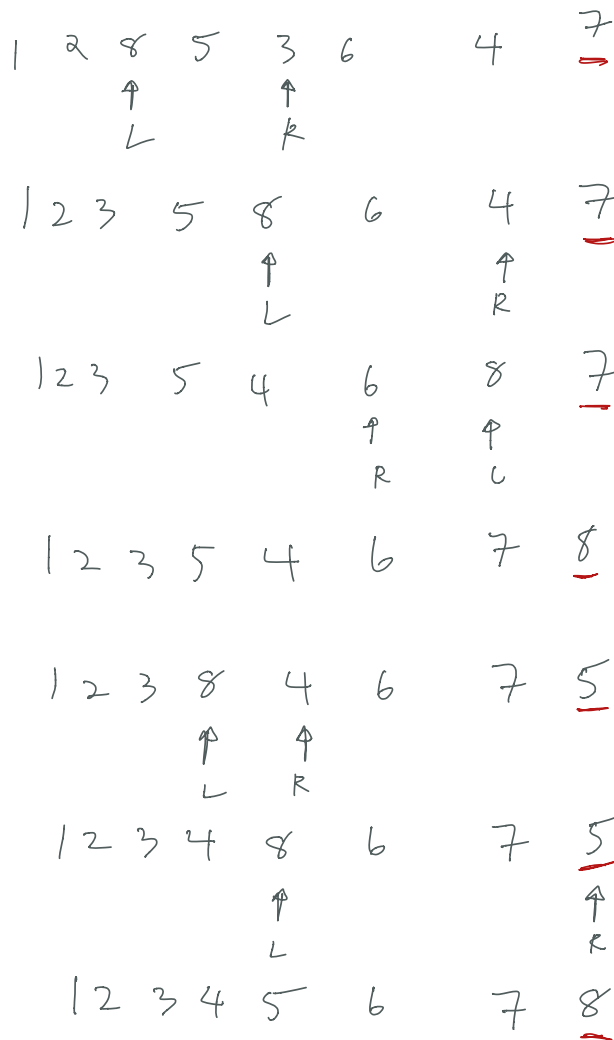 1 2 8 5 3 6 4 7
↑ ↑
L R
1 2 3 5 8 6 4 7
↑ ↑
L R
1 2 3 5 4 6 8 7
↑ ↑
R L
1 2 3 5 4 6 7 8
1 2 3 8 4 6 7 5
↑ ↑
L R
1 2 3 4 8 6 7 5
↑ ↑
L R
1 2 3 4 5 6 7 8